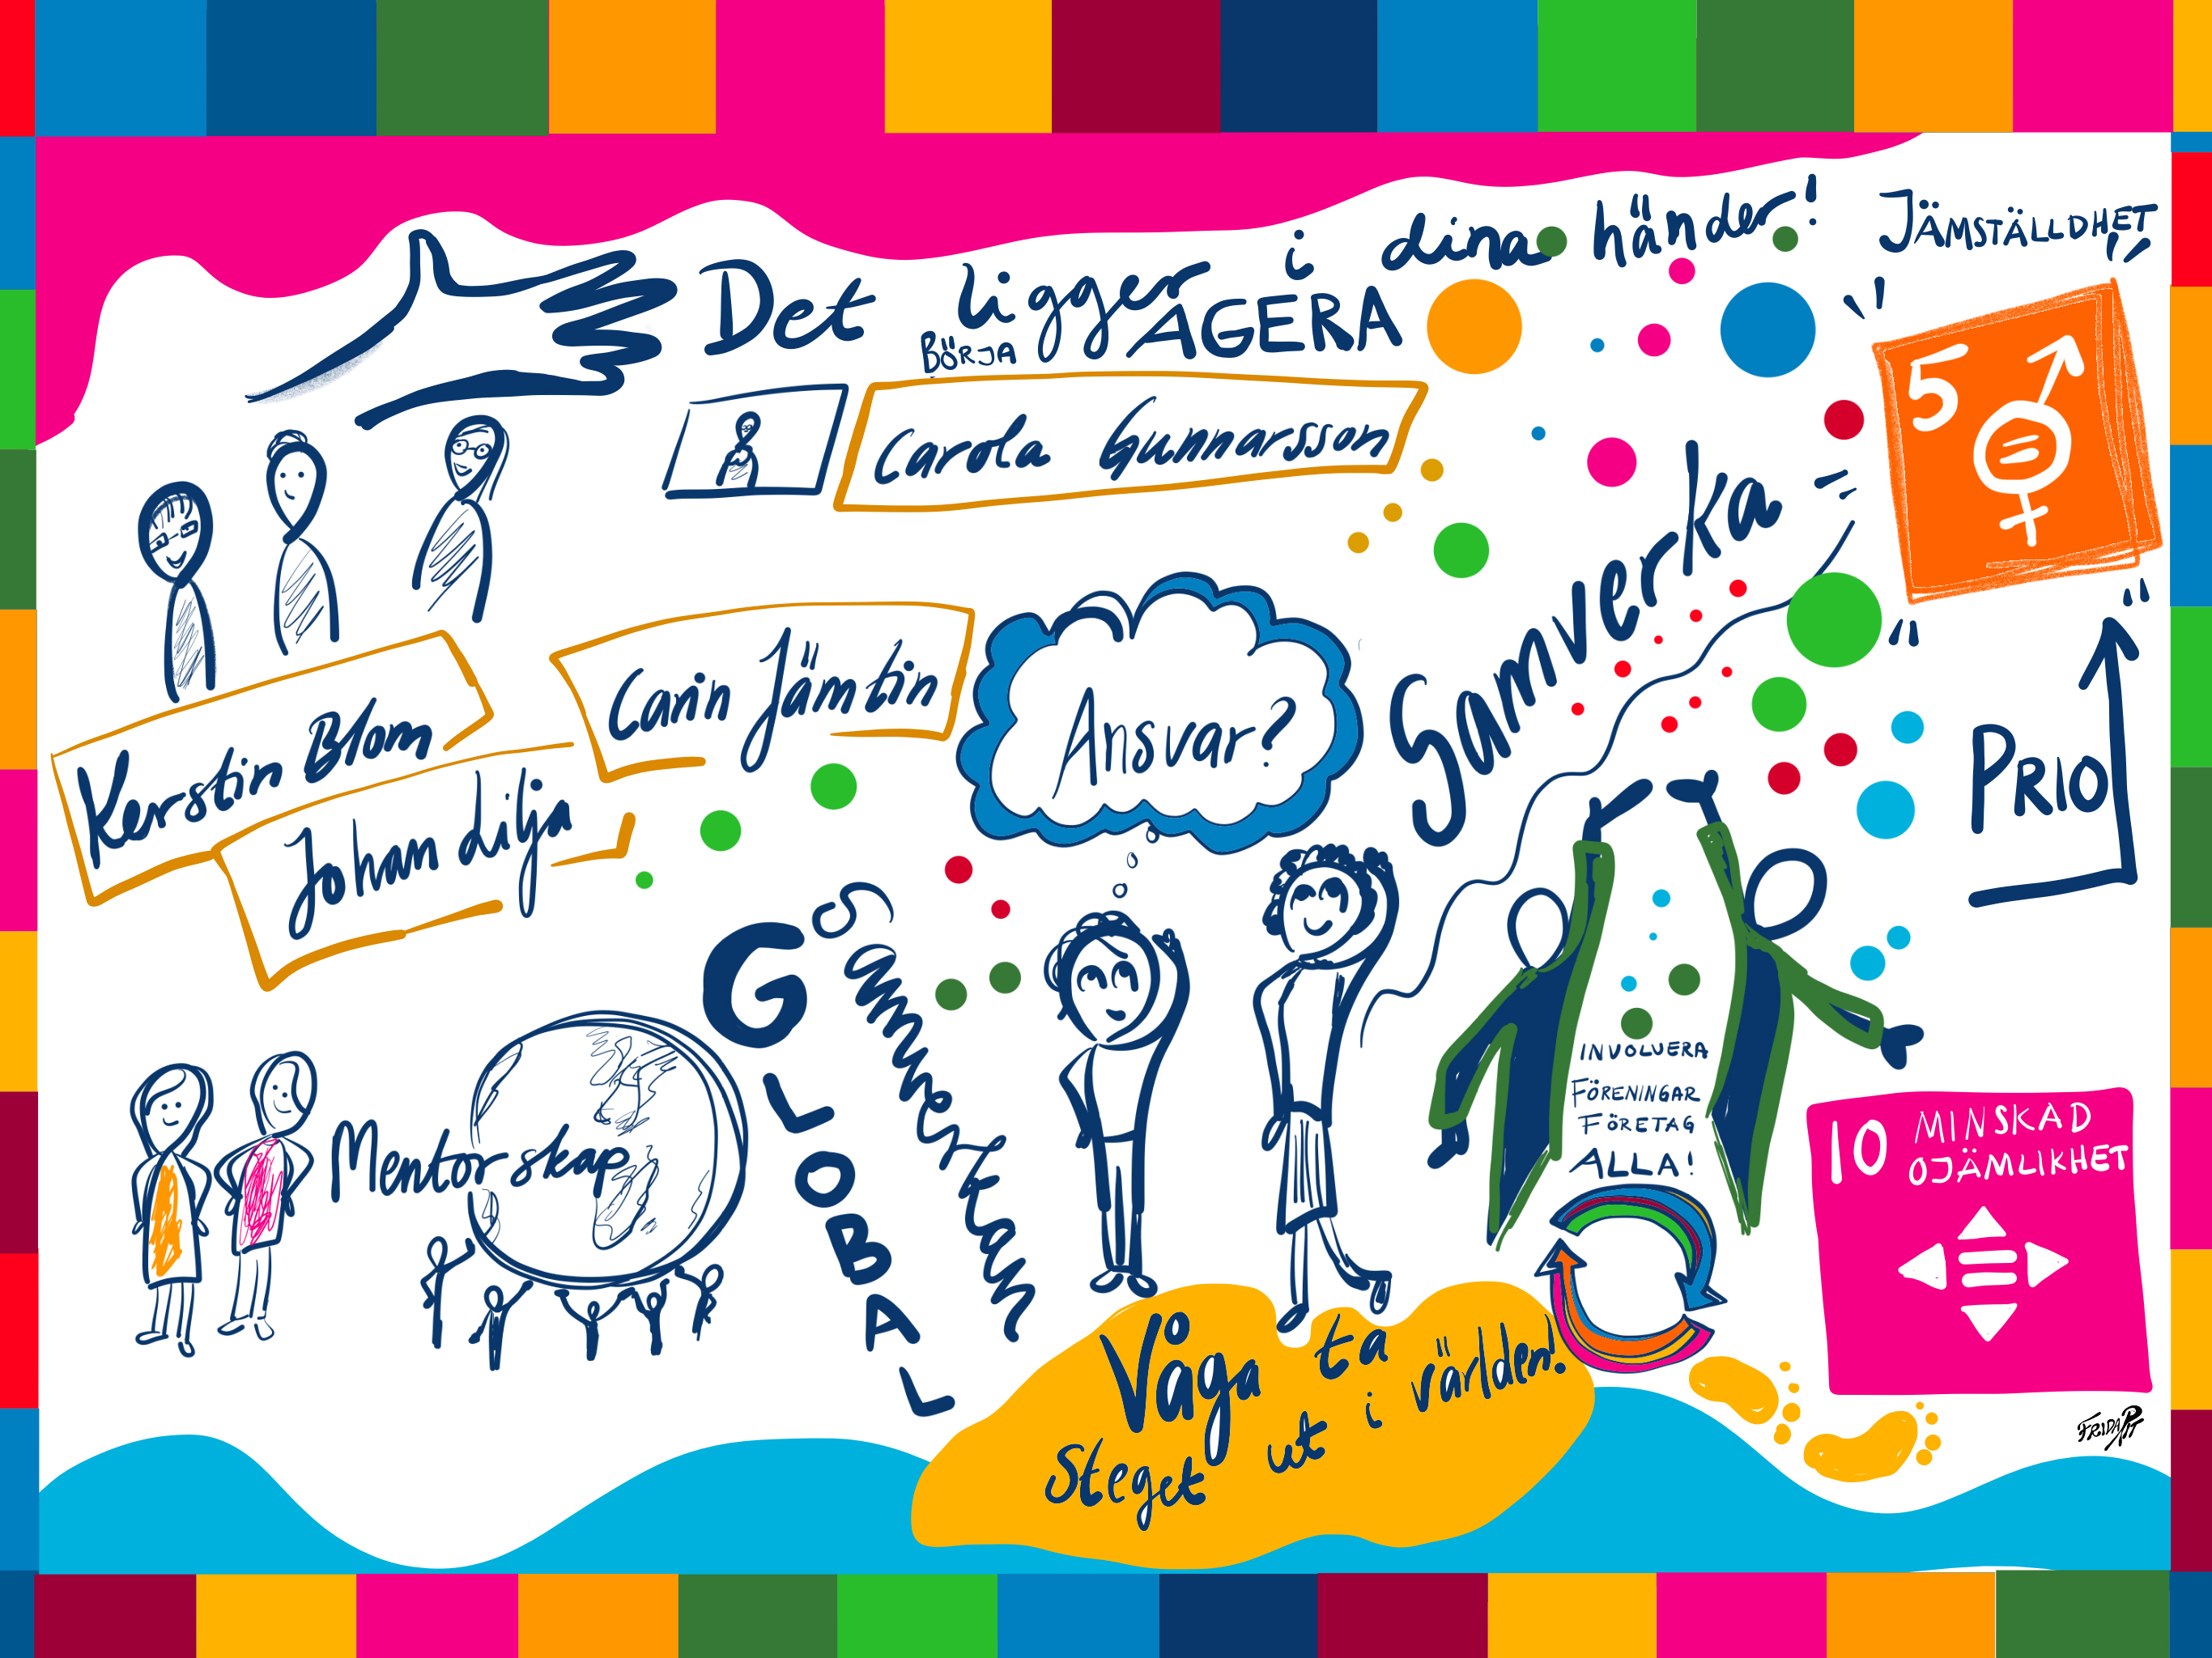 Det ligger i dina händer!
JÄMSTÄLLDHET!!
BÖRJA AGERA
5
Carola Gunnarsson
Samverka
Carin Jämtin
Kerstin Blom
Johan Lilja
Ansvar?
PRIO
GLOBAL
Sammanhang
INVOLVERA
FÖRENINGAR
FÖRETAG
ALLA!
Mentorskap
10 MINSKAD
OJÄMLIKHET
Våga ta
steget ut i världen!